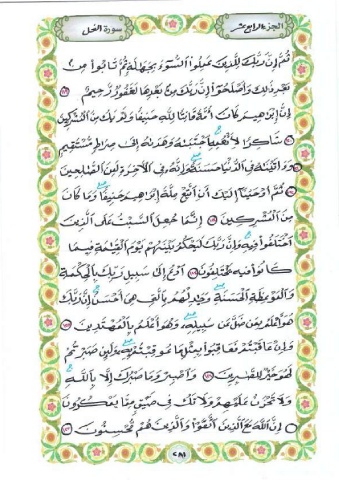 الجزء الرابع عشر
سورة النحل
ثُمَّ إِنَّ رَبَّكَ لِلَّذِينَ عَمِلُوا السُّوءَ بِجَهَالَةٍ ثُمَّ تَابُوا مِن
بَعْدِ ذَلِكَ وَأَصْلَحُوا إِنَّ رَبَّكَ مِنْ بَعْدِهَا لَغَفُورٌ رَحِيمٌ
إِنَّ إِبْرَاهِيمَ كَانَ أُمَّةً قَانِتًا لِلَّهِ حَنِيفًا وَلَمْ يَكُ مِنَ الْمُشْرِكِينَ
شَاكِرًا لِأَنْعُمِهِ اجْتَبَاهُ وَهَدَاهُ إِلَى صِرَاطٍ مُسْتَقِيمٍ
وَآتَيْنَاهُ فِي الدُّنْيَا حَسَنَةً وَإِنَّهُ فِي الْآخِرَةِ لَمِنَ الصَّالِحِينَ
ثُمَّ أَوْحَيْنَا إِلَيْكَ أَنِ اتَّبِعْ مِلَّةَ إِبْرَاهِيمَ حَنِيفًا وَمَا كَانَ
مِنَ الْمُشْرِكِينَ إِنَّمَا جُعِلَ السَّبْتُ عَلَى الَّذِينَ
اخْتَلَفُوا فِيهِ وَإِنَّ رَبَّكَ لَيَحْكُمُ بَيْنَهُمْ يَوْمَ الْقِيَامَةِ فِيمَا
كَانُوا فِيهِ يَخْتَلِفُونَ ادْعُ إِلَى سَبِيلِ رَبِّكَ بِالْحِكْمَةِ
وَالْمَوْعِظَةِ الْحَسَنَةِ وَجَادِلْهُمْ بِالَّتِي هِيَ أَحْسَنُ إِنَّ رَبَّكَ
هُوَ أَعْلَمُ بِمَنْ ضَلَّ عَنْ سَبِيلِهِ وَهُوَ أَعْلَمُ بِالْمُهْتَدِينَ
وَإِنْ عَاقَبْتُمْ فَعَاقِبُوا بِمِثْلِ مَا عُوقِبْتُمْ بِهِ وَلَئِنْ صَبَرْتُمْ
لَهُوَ خَيْرٌ لِلصَّابِرِينَ وَاصْبِرْ وَمَا صَبْرُكَ إِلَّا بِاللَّهِ
وَلَا تَحْزَنْ عَلَيْهِمْ وَلَا تَكُ فِي ضَيْقٍ مِمَّا يَمْكُرُونَ
إِنَّ اللَّهَ مَعَ الَّذِينَ اتَّقَوْا وَالَّذِينَ هُمْ مُحْسِنُونَ
٢٨١